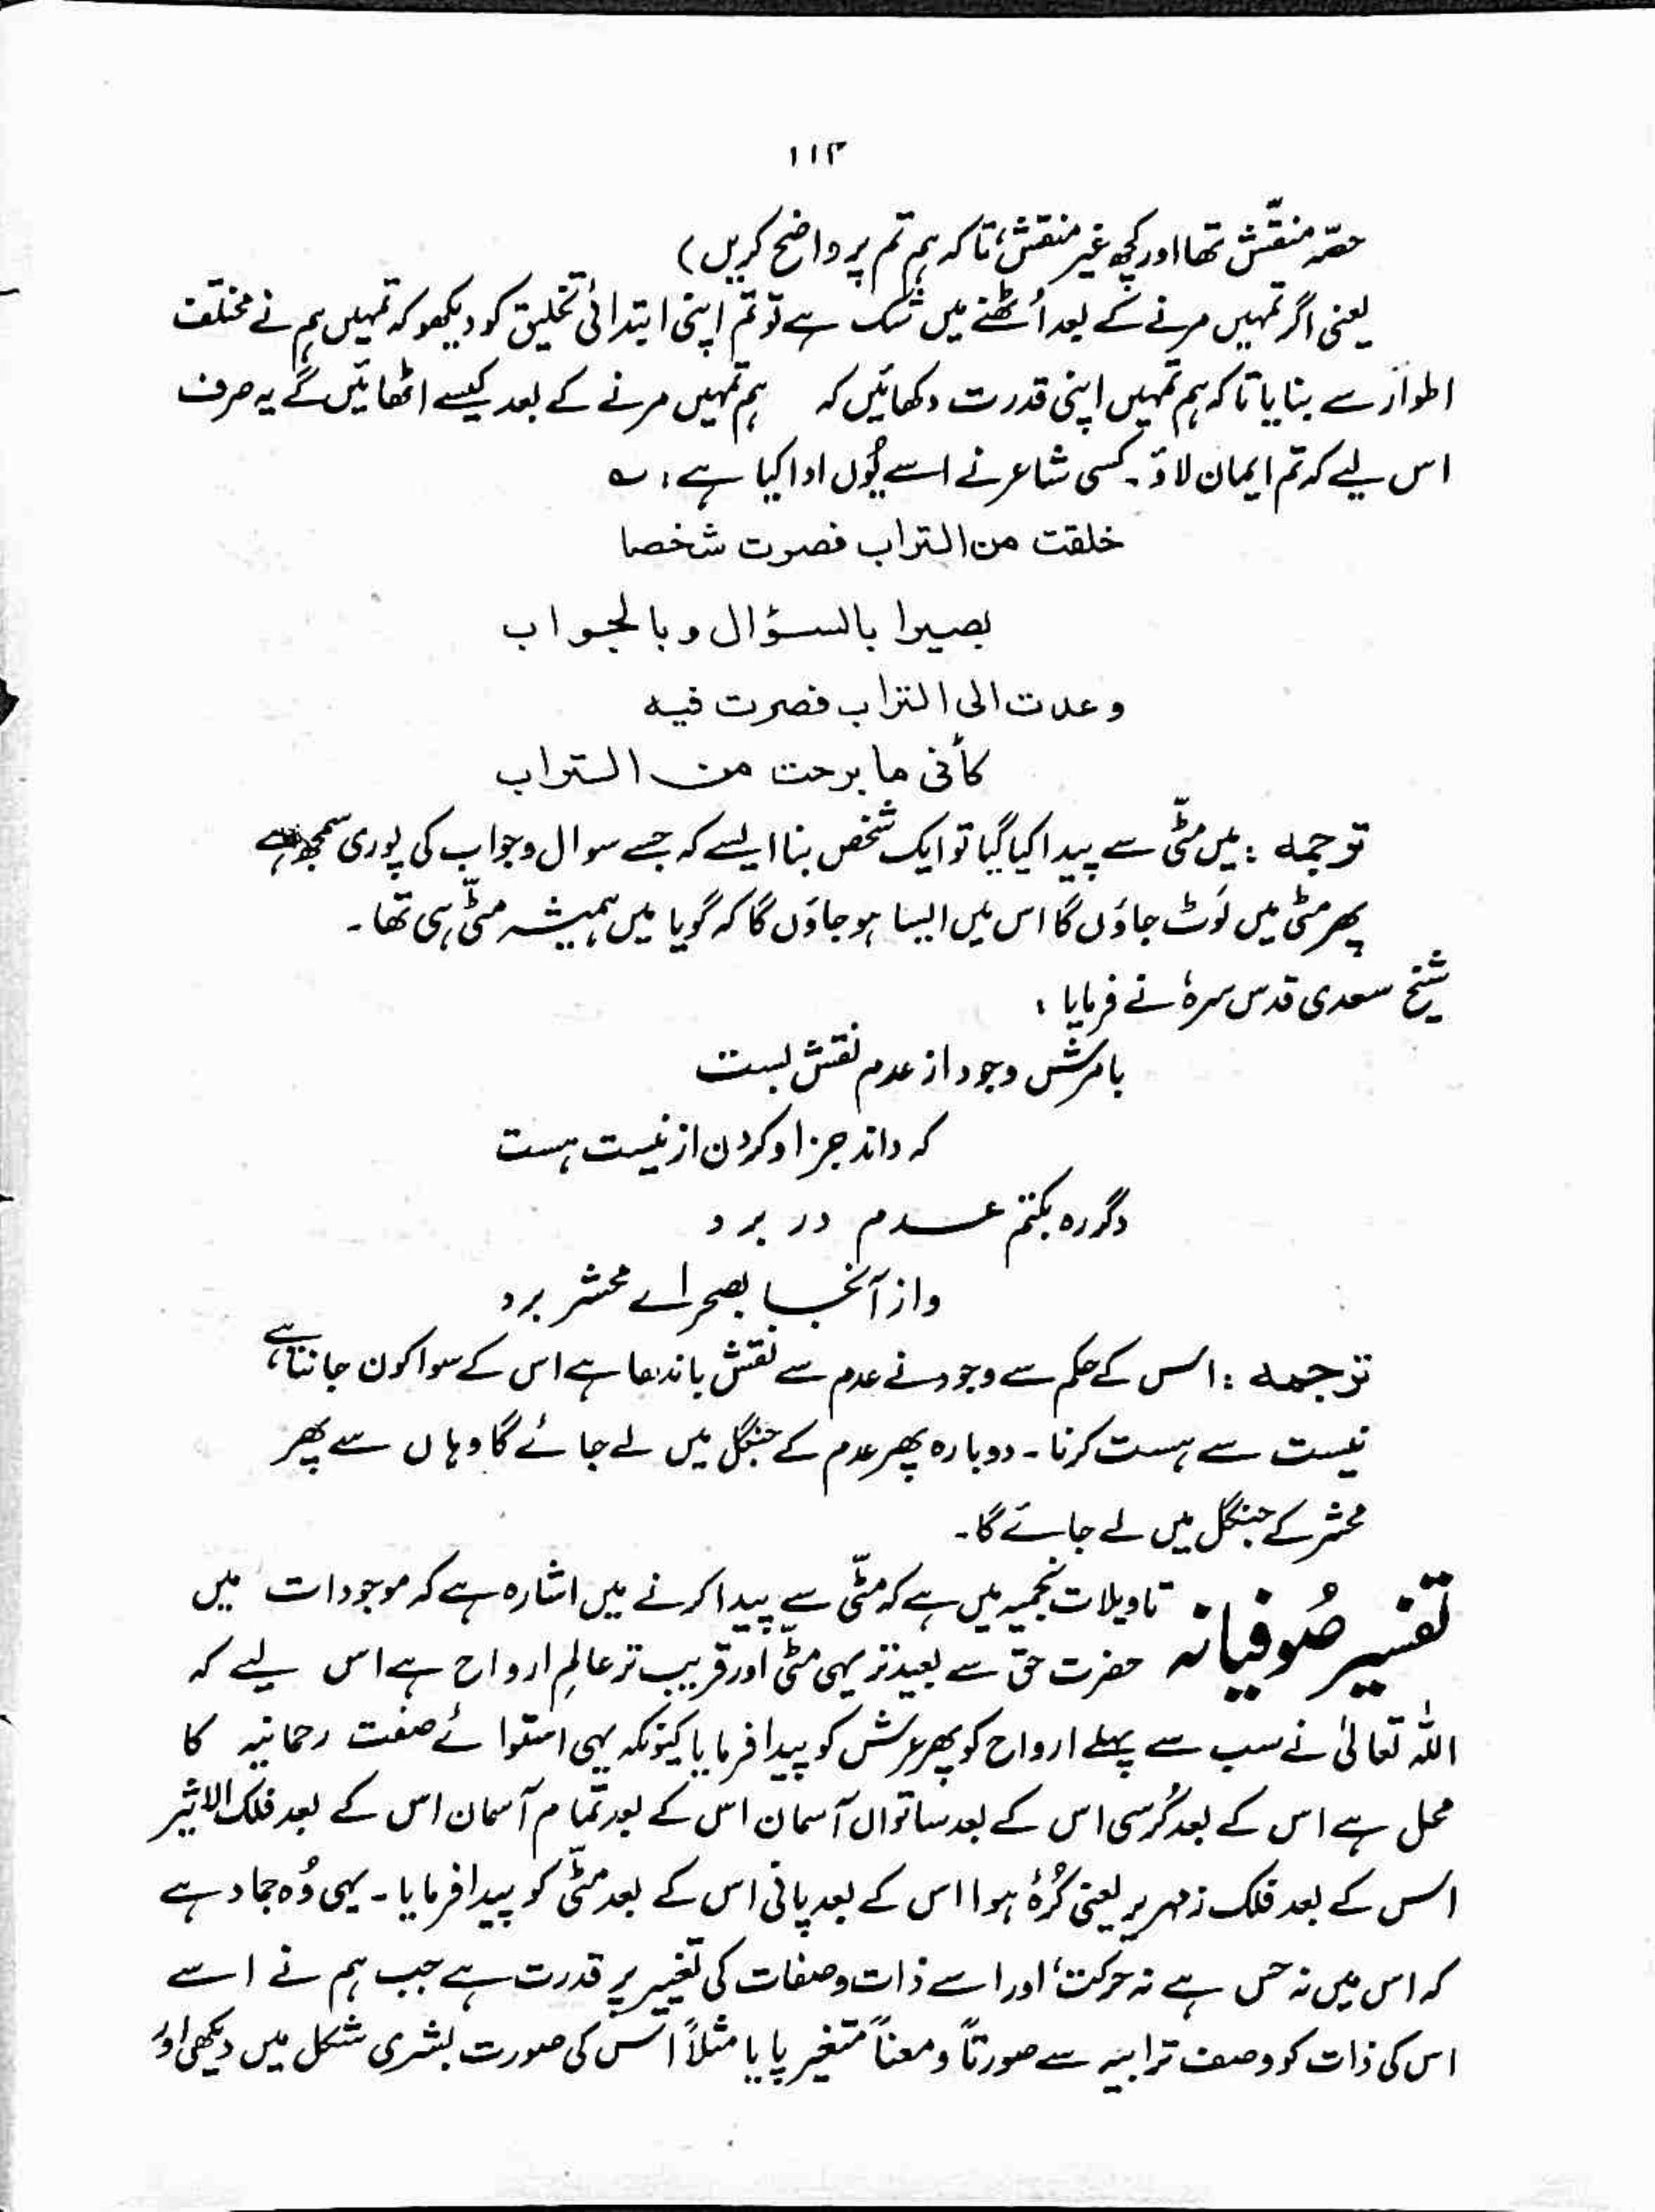 ۱۱۳
حصّہ منقّش تھا اور کچھ غیر منقش، تاکہ ہم تم پر واضح کریں)
یعنی اگر تمہیں مرنے کے بعد اُٹھنے میں شک ہے تو تم اپنی ابتدائی تخلیق کو دیکھو کہ تمہیں ہم نے مختلف
اطوار سے بنایا تاکہ ہم تمہیں اپنی قدرت دکھائیں کہ ہم تمہیں مرنے کے بعد کیسے اٹھائیں گے یہ صرف
اس لیے کہ تم ایمان لاؤ۔ کسی شاعر نے اسے یُوں ادا کیا ہے: ؎
خلقت من التراب فصرت شخصا
بصیرا بالسؤال و بالجواب
وعدت الی التراب فصرت فیه
کأنی ما برحت من التراب
ترجمہ: میں مٹّی سے پیدا کیا گیا تو ایک شخص بنا ایسے کہ جسے سوال و جواب کی پوری سمجھ ہے
پھر مٹی میں لَوٹ جاؤں گا اس میں ایسا ہو جاؤں گا کہ گویا میں ہمیشہ مٹّی ہی تھا۔
شیخ سعدی قدس سرہٗ نے فرمایا:
بامرش وجود از عدم نقش بست
کہ داند جز او کردن از نیست ہست
دگر رہ بکتم عدم در برد
و از آنجا بصحرائے محشر برد
ترجمہ: اس کے حکم سے وجود نے عدم سے نقش باندھا ہے اس کے سوا کون جانتا ہے،
نیست سے ہست کرنا۔ دوبارہ پھر عدم کے جنگل میں لے جائے گا وہاں سے پھر
محشر کے جنگل میں لے جائے گا۔
تفسیر صُوفیانہ تاویلات نجمیہ میں ہے کہ مٹّی سے پیدا کرنے میں اشارہ ہے کہ موجودات میں
حضرت حق سے بعید تر یہی مٹّی اور قریب تر عالمِ ارواح ہے اس لیے کہ
اللہ تعالیٰ نے سب سے پہلے ارواح کو پھر عرش کو پیدا فرمایا کیونکہ یہی استوائے صفت رحمانیہ کا
محل ہے اس کے بعد کُرسی اس کے بعد ساتواں آسمان اس کے بعد تمام آسمان اس کے بعد فلک الاثیر
اس کے بعد فلک زمہریر یعنی کُرۂ ہوا اس کے بعد پانی اس کے بعد مٹّی کو پیدا فرمایا۔ یہی وُہ جماد ہے
کہ اس میں نہ حس ہے نہ حرکت، اور اسے ذات و صفات کی تغییر پر قدرت ہے جب ہم نے اسے
اس کی ذات کو وصف ترابیہ سے صورتاً و معناً متغیر پایا مثلاً اس کی صورت بشری شکل میں دیکھی اور